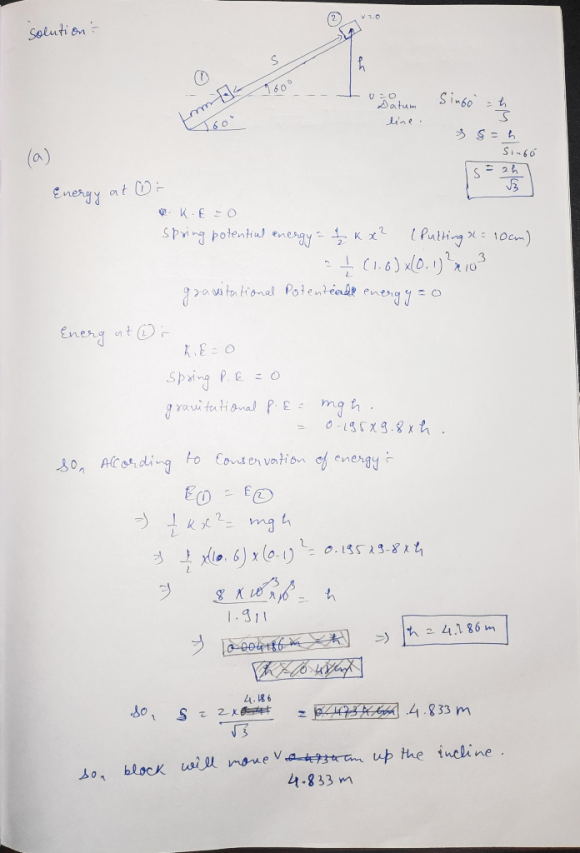 Solution :-
② v=0
S
h
①
60°
v=0
Datum line.
60°
Sin60° = h/S
⇒ S = h/Sin60
S = 2h/√3
(a)
Energy at ① :-
K.E = 0
Spring potential energy = 1/2 K x² (Putting x = 10cm)
= 1/2 (1.6) x (0.1)² x 10³
gravitational Potential energy = 0
Energ at ② :-
K.E = 0
Spring P.E = 0
gravitational P.E = mgh.
= 0.195 x 9.8 x h.
So, According to Conservation of energy :-
E① = E②
⇒ 1/2 K x² = mgh
⇒ 1/2 x (10.6) x (0.1)² = 0.195 x 9.8 x h
⇒ 8 x 10⁻³ x 10³ / 1.911 = h
⇒ 0.004186 m = h ⇒ h = 4.186 m
So, S = 2 x 4.186 / √3 = 4.833 m
So, block will move 4.833 m up the incline.